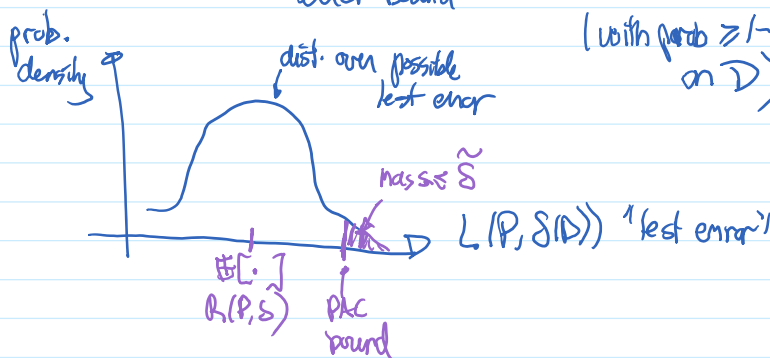 prob.
density
dist. over possible
test error
(with prob ≥ 1-
on D)
mass ≤ δ̃
L(P, δ(D)) "test error"
𝔼[·]
R(P, δ)
PAC
bound